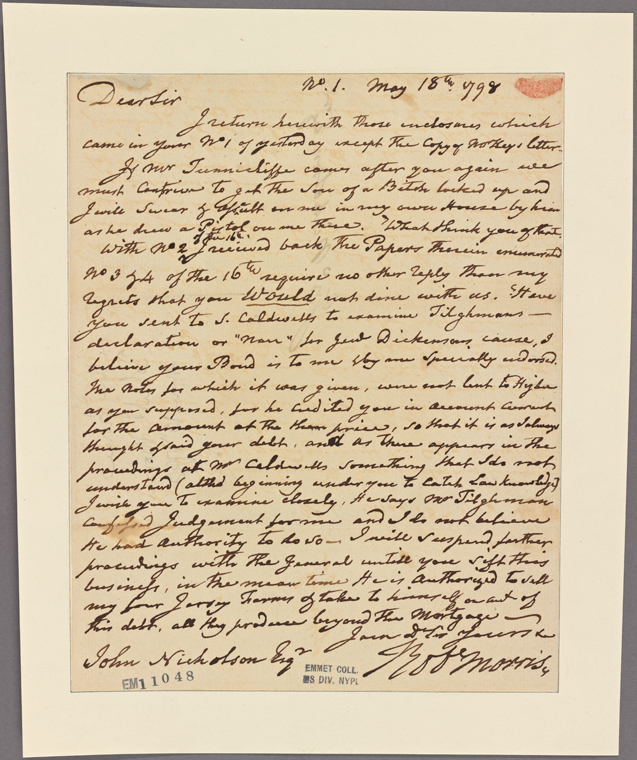 No. 1. May 18th. 1798
Dear Sir
I return herewith those enclosures which
came in your No 1 of yesterday except the Copy of Notleys letter.
If Mr Tunnicliffe comes after you again we
must Contrive to get the Son of a Bitch locked up and
I will Swear to on me in my own House by him
as he drew a Pistol on me there. What think you of that.
With No 2 of the 16th. I received back the Papers therein enumerated
No 3 & 4 of the 16th require no other reply than my
regrets that you Would not dine with us. Have
you sent to S. Caldwells to examine Tilghmans
declaration or "Narr" for Genl Dickensons cause, I
believe your Bond is to me & by me Specially endorsed.
The Notes for which it was given, were not lent to Higbee
as you supposed, for he credited you in account Current
for the amount at the price, so that it is as I always
thought & said your debt, and as there appears in the
procedings at Mr Caldwells something that I do not
understand (altho beginning under you to Catch Law Knowledge)
I wish you to examine closely, He says Mr Tilghman
Confessed Judgement for me and I do not believe
He had authority to do so — I will suspend farther
procedings with the General untill you Sift this
business, in the mean time He is Authorized to sell
my our Jersey Farms or take to himself on acct of
this debt, all they produce beyond the Mortgage —
I am Dr Sir Yours &c
John Nicholson Esqr Robt Morris
EM11048
EMMET COLL.
MS DIV. NYPL